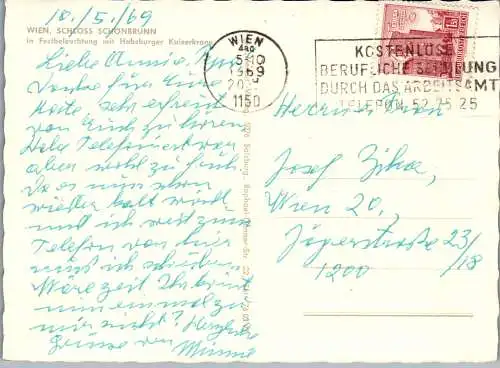 10./5./69
WIEN, SCHLOSS SCHÖNBRUNN
In Festbeleuchtung mit Habsburger Kaiserkrone
Liebe Annie.
danke für Eure
Karte, sehr erfreut
von Euch zu hören.
Habe Telefoniert war
aber wohl zu früh.
Da es nun schon
wieder kalt wurde
und ich weit zum
Telefon von hier
muß ich schreiben.
Wäre Zeit Ihr kommt
nun einmal zu
mir nicht? Herzliche
Grüsse von Minnie
WIEN
1969
1150
KOSTENLOSE
BERUFLICHE BERATUNG
DURCH DAS ARBEITSAMT
TELEFON 52 75 25
Herrn u Frau
Josef Zika,
Wien 20.,
Jägerstraße 23/
/18
1200